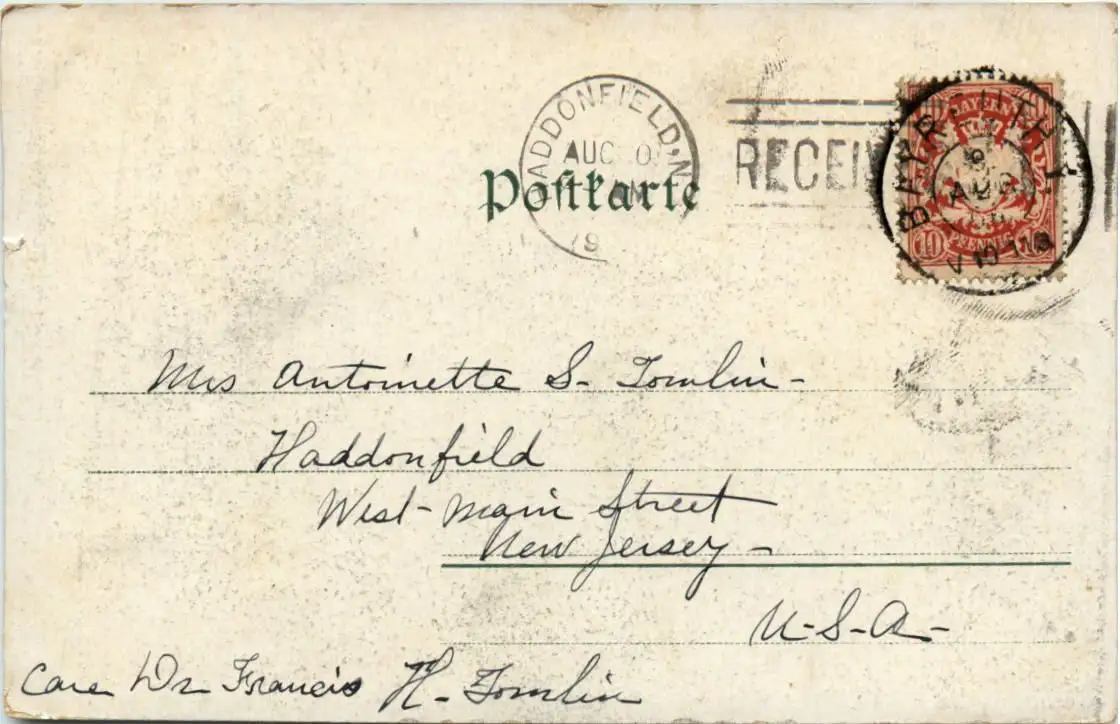 HADDONFIELD, N.
AUG 0
19
RECEIV
BAYREUTH
AUG
BAYERN
10 PFENNIG
Postkarte
Mrs Antoinette S- Tomlin-
Haddonfield
West-Main Street
New Jersey-
U-S-A-
Care Dr Francis H- Tomlin